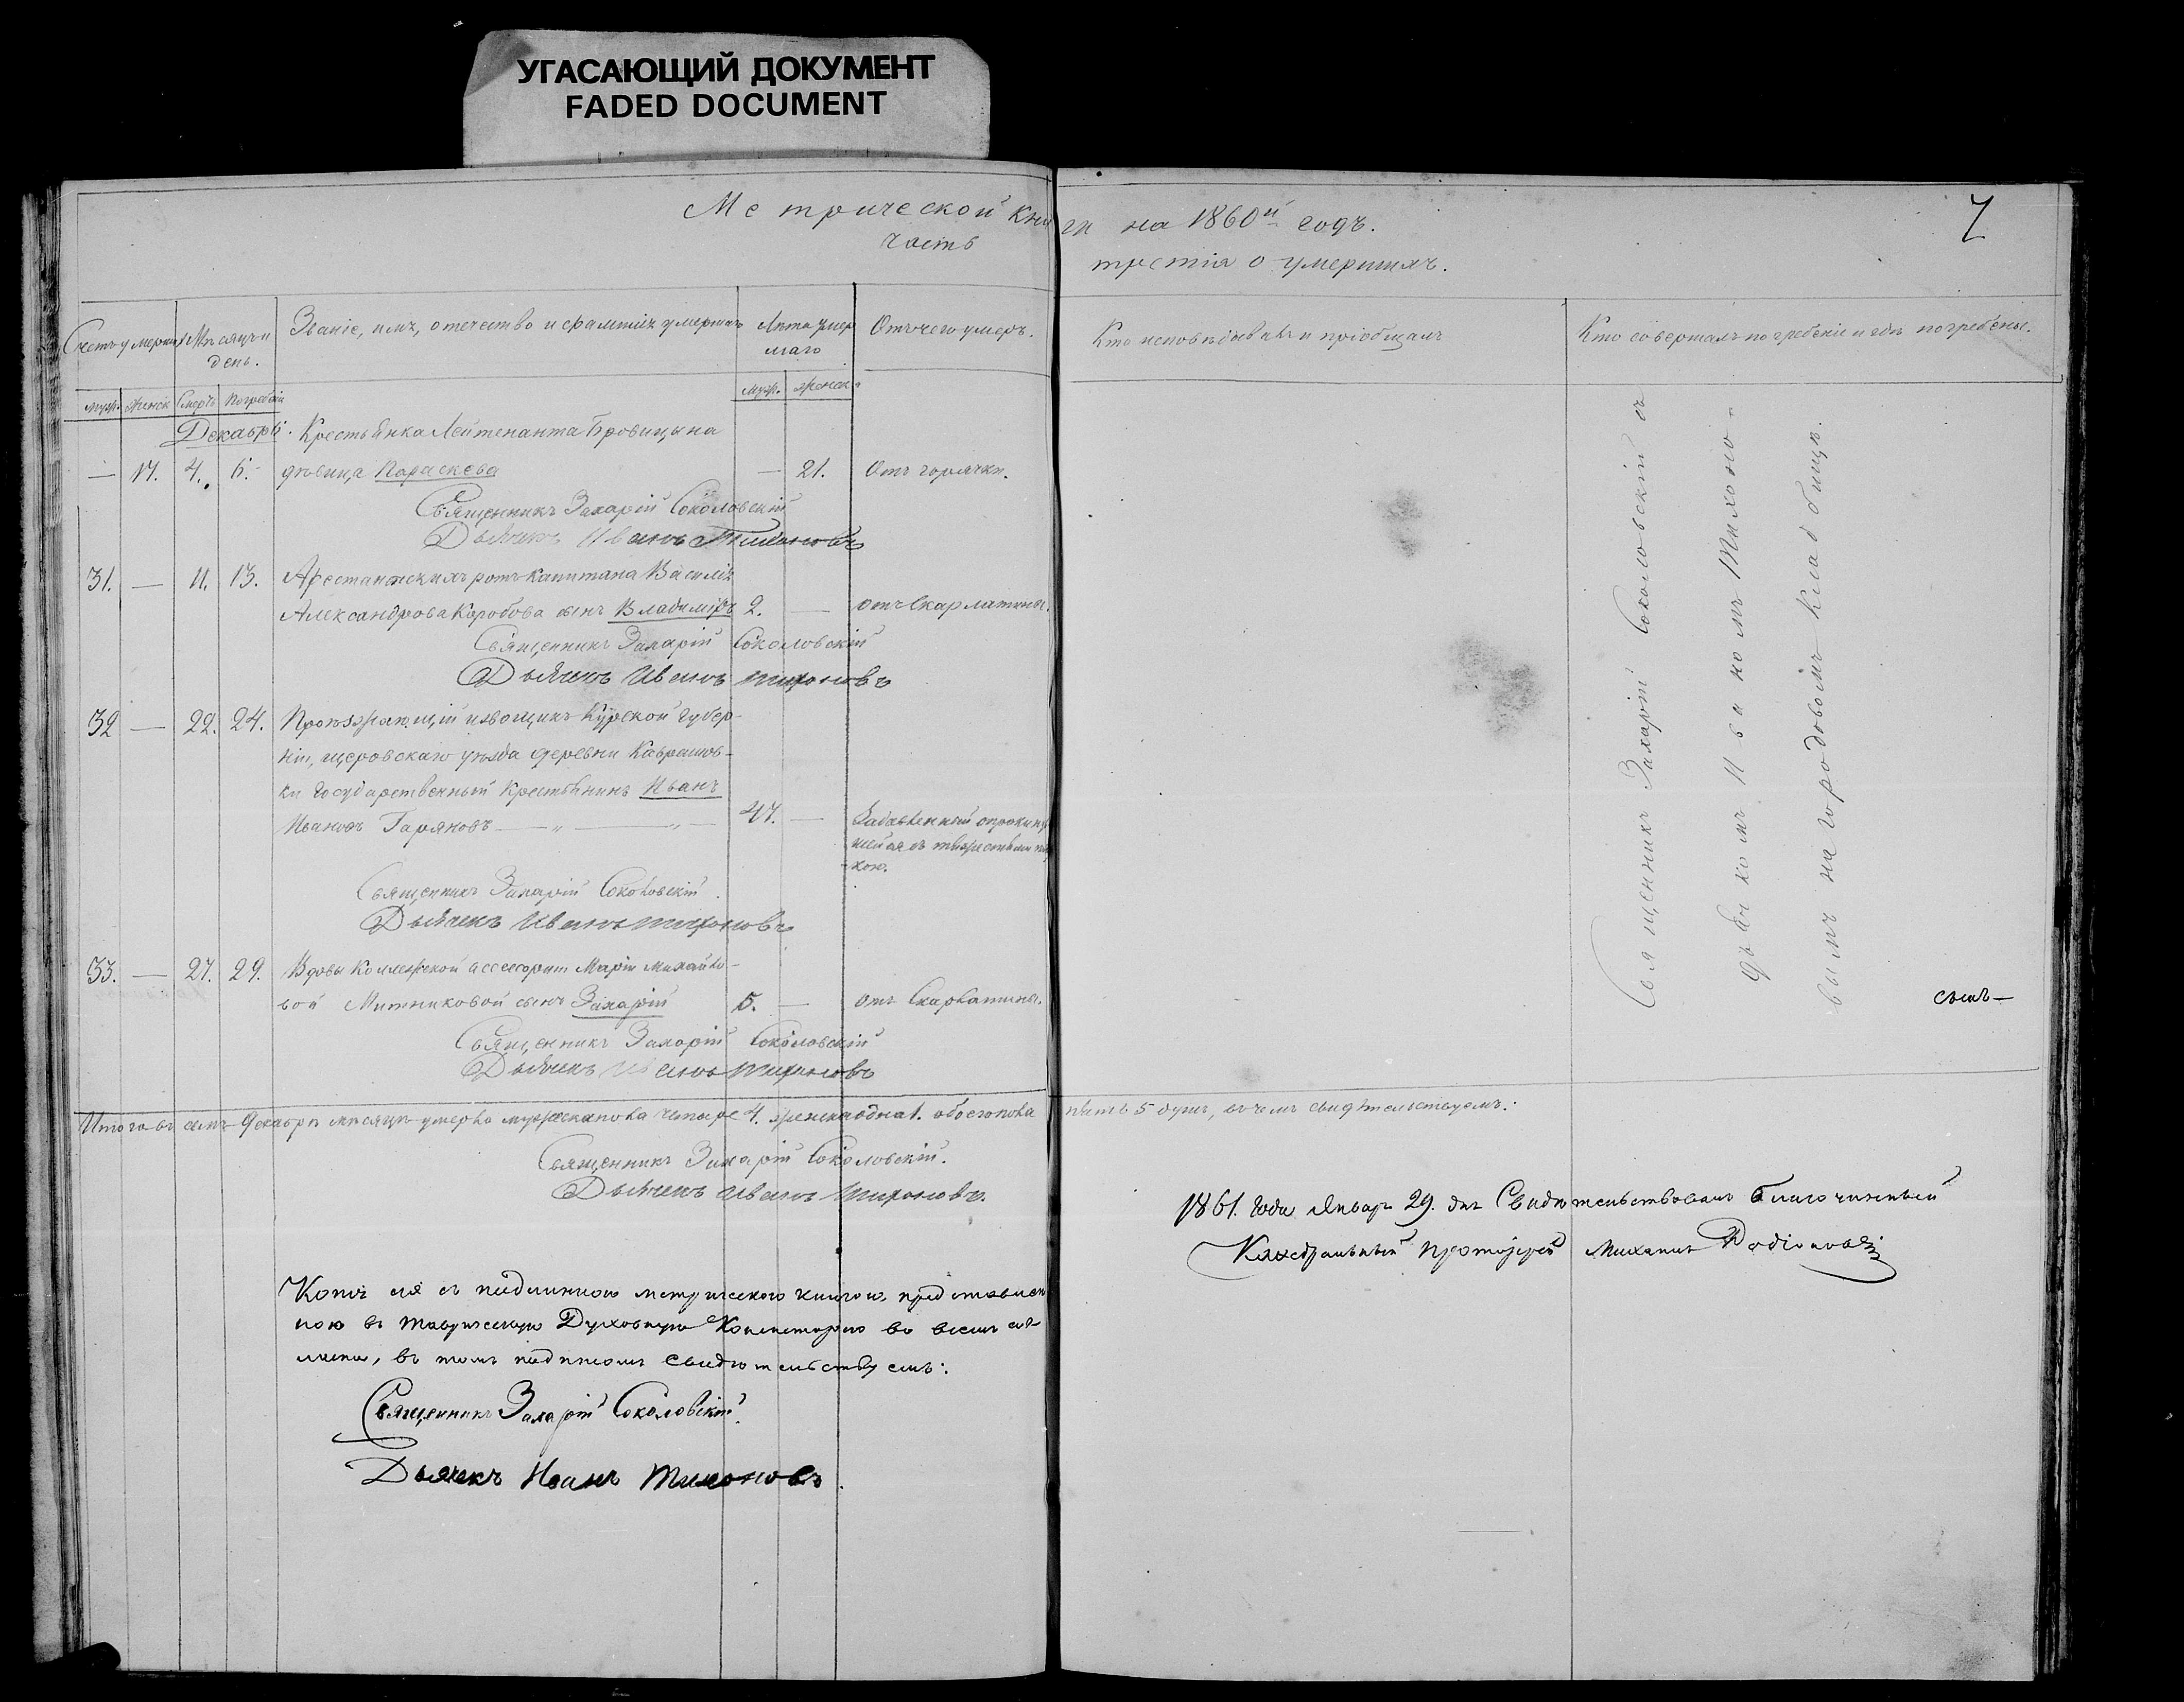 УГАСАЮЩИЙ ДОКУМЕНТ
FADED DOCUMENT
Метрической книги на 1860й годъ.
часть третія о умершихъ.
7
Счетъ умерших
Мѣсяцъ и день.
Званіе, имя, отечество и фамилія умершаго
Лѣта умершаго
Отъ чего умеръ.
Кто исповѣдывалъ и пріобщалъ
Кто совершалъ погребеніе и гдѣ погребены.
муж. женск Смерть Погребенія
муж. женск.
Декабрь. Крестьянка Лейтенанта Бровицына
— 17. 4. 6. дѣвица Параскева — 21. Отъ горячки.
Священникъ Захарій Соколовскій
Дьячекъ Иванъ Тихоновъ
31. — 11. 13. Арестантскихъ ротъ Капитана Василія
Александрова Коробова сынъ Владиміръ 2. — отъ Скарлатины.
Священникъ Захарій Соколовскій
Дьячекъ Иванъ Тихоновъ
32 — 22. 24. Проѣзжающій извощикъ Курской Губер-
ніи, щеровскаго уѣзда деревни
ки Государственный Крестьянинъ Иванъ
Ивановъ Гаряновъ — „ — „ — 47. — Задавленный опрокинув
шейся съ тяжестями
кою.
Священникъ Захарій Соколовскій.
Дьячекъ Иванъ Тихоновъ
33. — 27. 29. Вдовы Коллежской ассесорши Маріи Михайло-
вой Митниковой сынъ Захарій 5. — отъ Скарлатины.
Священникъ Захарій Соколовскій
Дьячекъ Иванъ Тихоновъ
Священникъ Захарій Соколовскій съ
дьячкомъ Иваномъ Тихоно-
вымъ на городовомъ кладбищѣ.
Итого въ семъ Декабрѣ мѣсяцѣ умерло мужеска пола четыре 4. женска одна 1. обоего пола пять 5 душъ, въ чемъ свидѣтельствуемъ:
Священникъ Захарій Соколовскій.
Дьячекъ Иванъ Тихоновъ.
1861. Года Января 29. дня Свидѣтельствовалъ Благочинный
Каѳедральный Протоіерей Михаилъ Родіоновъ
Копія сія съ подлинною метрическою книгою, представлен
ною въ Таврическую Духовную Консисторію во всемъ со-
гласна, въ томъ подписомъ свидѣтельствуемъ:
Священникъ Захарій Соколовскій.
Дьячекъ Иванъ Тихоновъ.